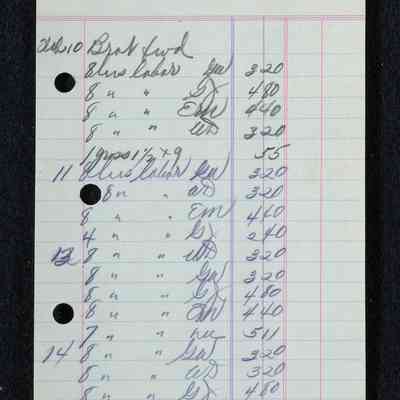 Feb 10 Brot fwd
8 hrs labor GW 320
8 " " GJ 480
8 " " EM 440
8 " " WD 320
1 gross 1 1/2 x 9 55
11 8 hrs labor GW 320
8 " " WD 320
8 " EM 440
4 " " GJ 240
13 8 " " WD 320
8 " " GW 320
8 " " GJ 480
8 " " EM 440
7 " " 511
14 8 " " GW 320
8 " " WD 320
8 " " GJ 480